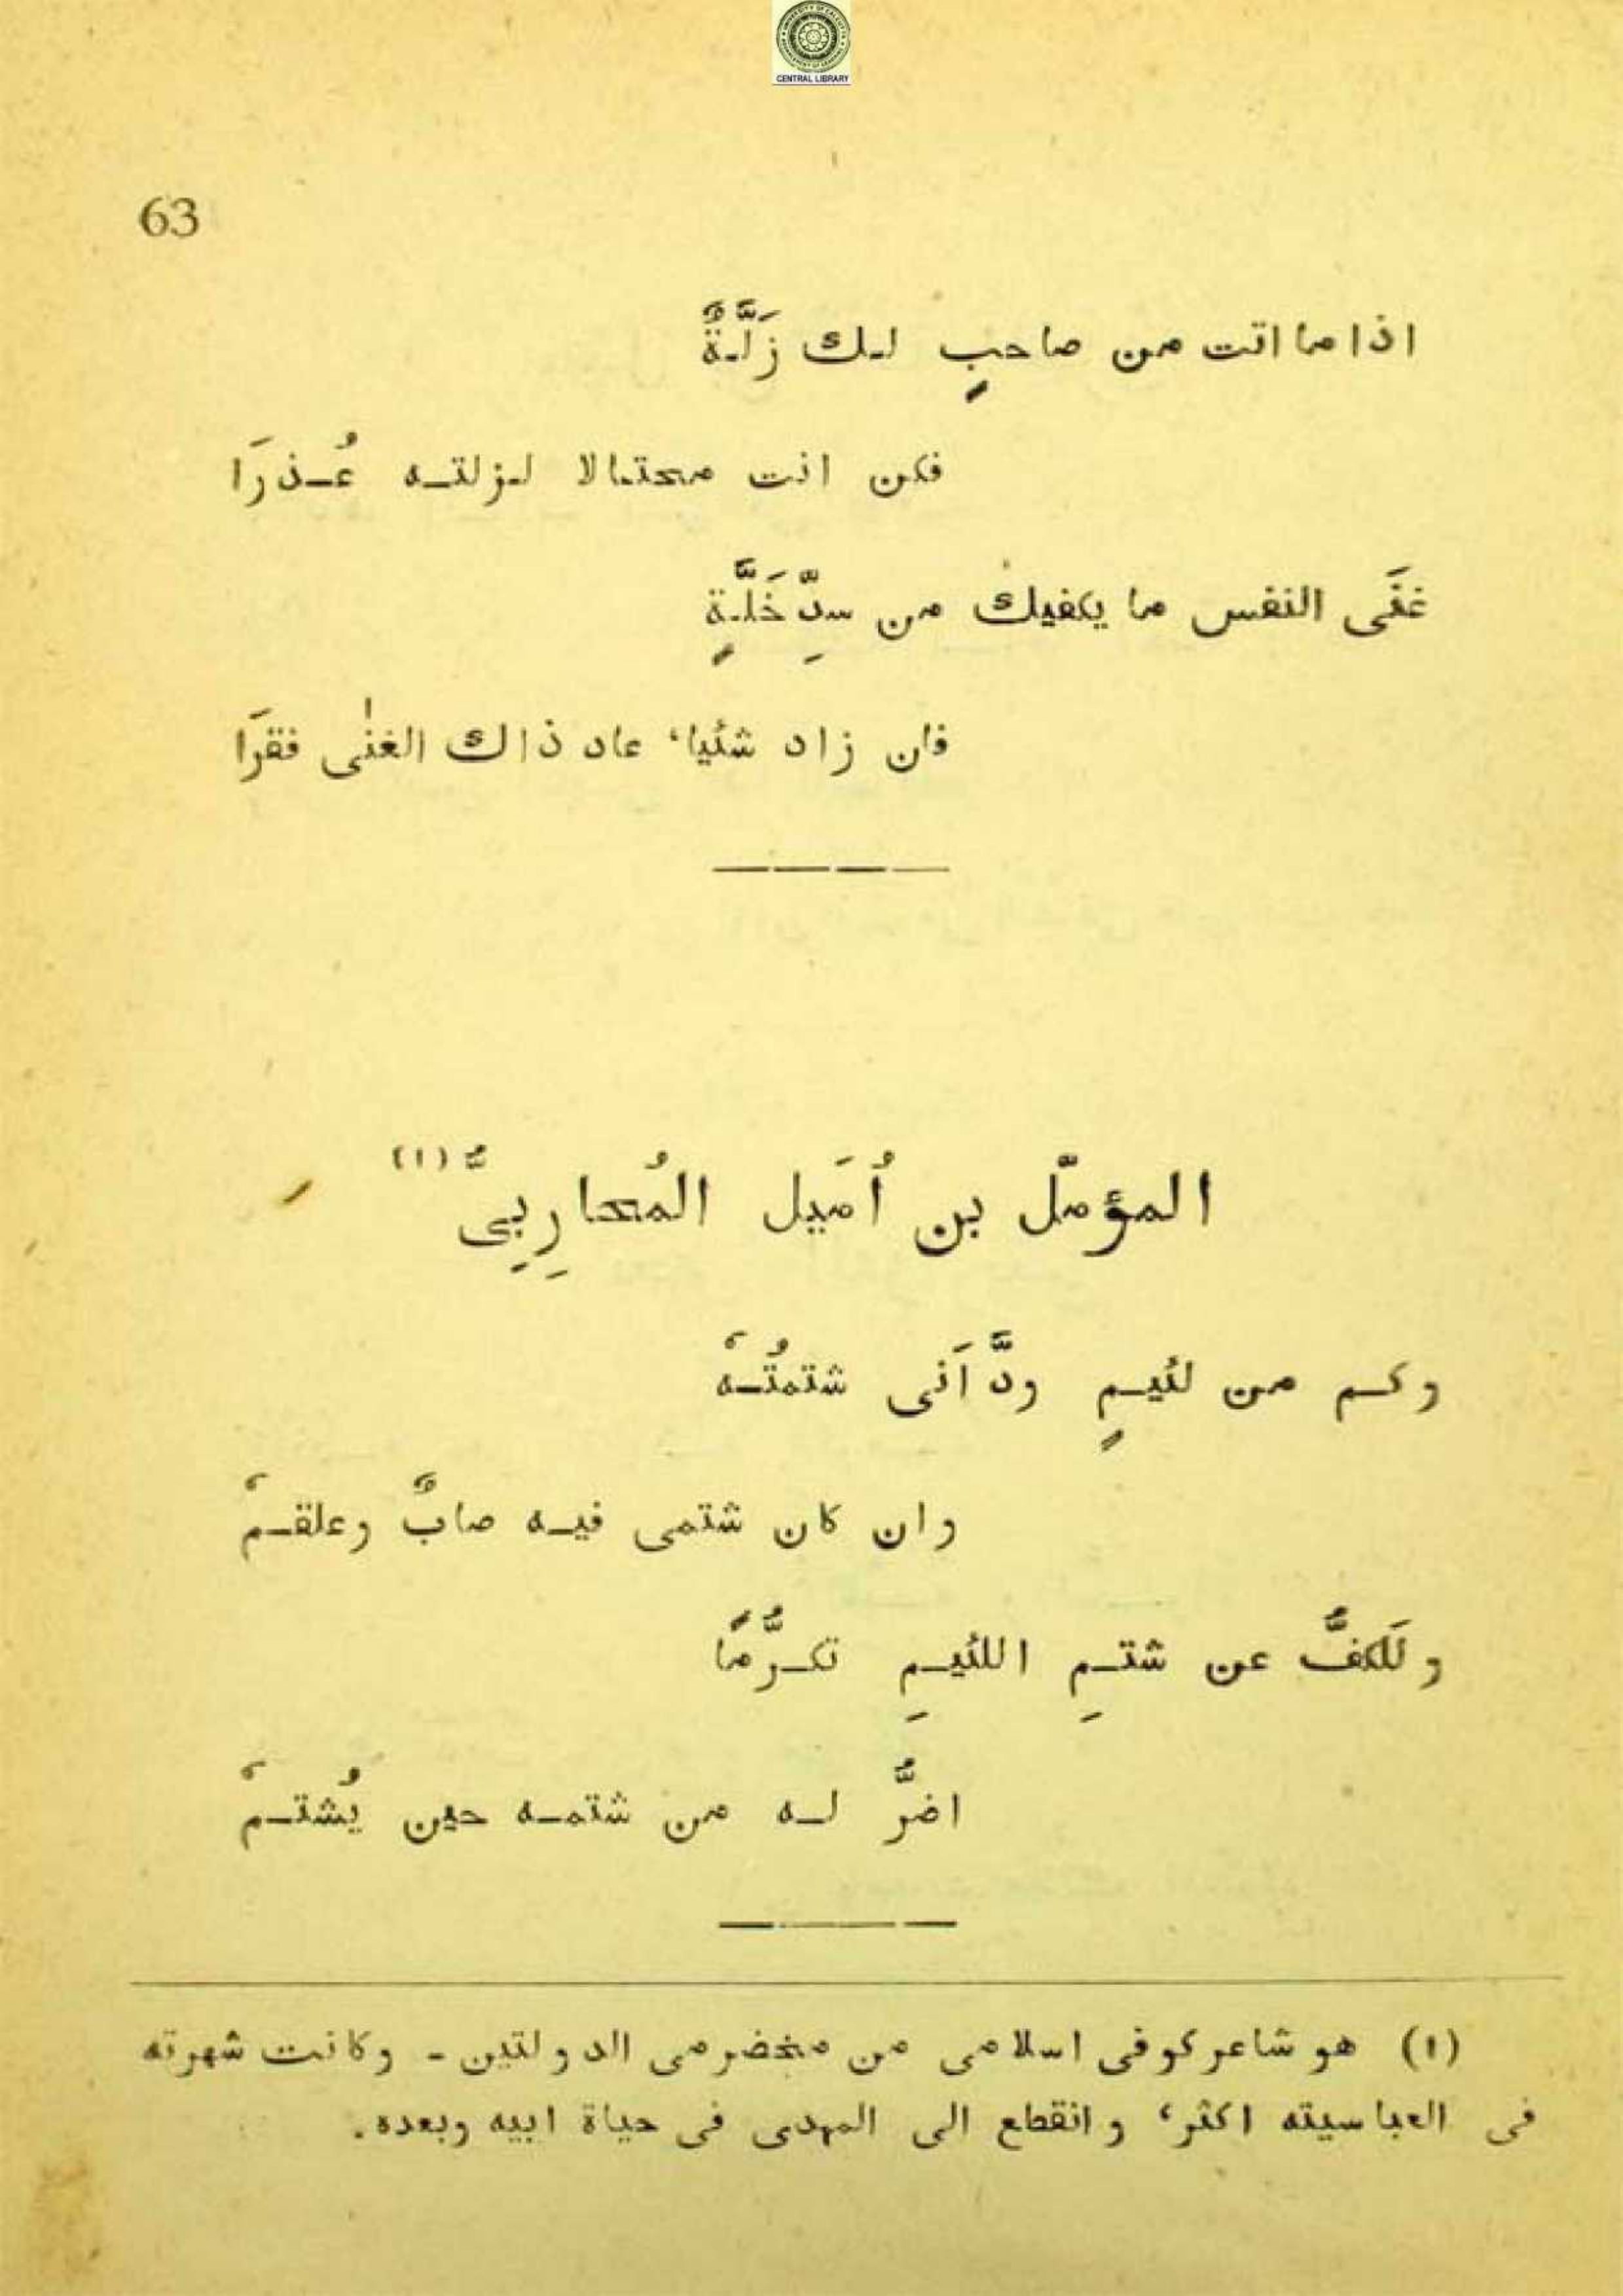 CENTRAL LIBRARY
63
اذا ما اتت من صاحبٍ لك زَلَّةٌ
فكن انت محتالا لزلته عُذرَا
غنَى النفس ما يكفيك من سدِّ خَلَّةٍ
فان زاد شئيا، عاد ذاك الغنٰى فقرَا
المؤمّل بن اُمَيل المُحارِبِىُّ (١)
وكم من لئيمٍ ودَّ اَنى شتمتُهْ
وان كان شتمى فيه صابٌ وعلقمْ
ولَلكفُّ عن شتمِ اللئيمِ تكرُّمًا
اضرُّ له من شتمه حين يُشتمْ
(١) هو شاعر كوفى اسلامى من مخضرمى الدولتين - وكانت شهرته
فى العباسيته اكثر، وانقطع الى المهدى فى حياة ابيه وبعده.